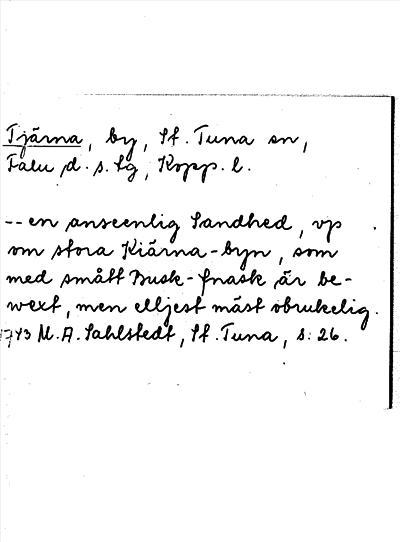 Tjärna, by, St. Tuna sn,
Falu d. s. lg, Kopp. l.
-- en anseenlig Sandhed, vp
om stora Kiärna-byn, som
med smått Busk-fnask är be-
wext, men elljest mäst obrukelig.
1743 M. A. Sahlstedt, St. Tuna, s. 26.